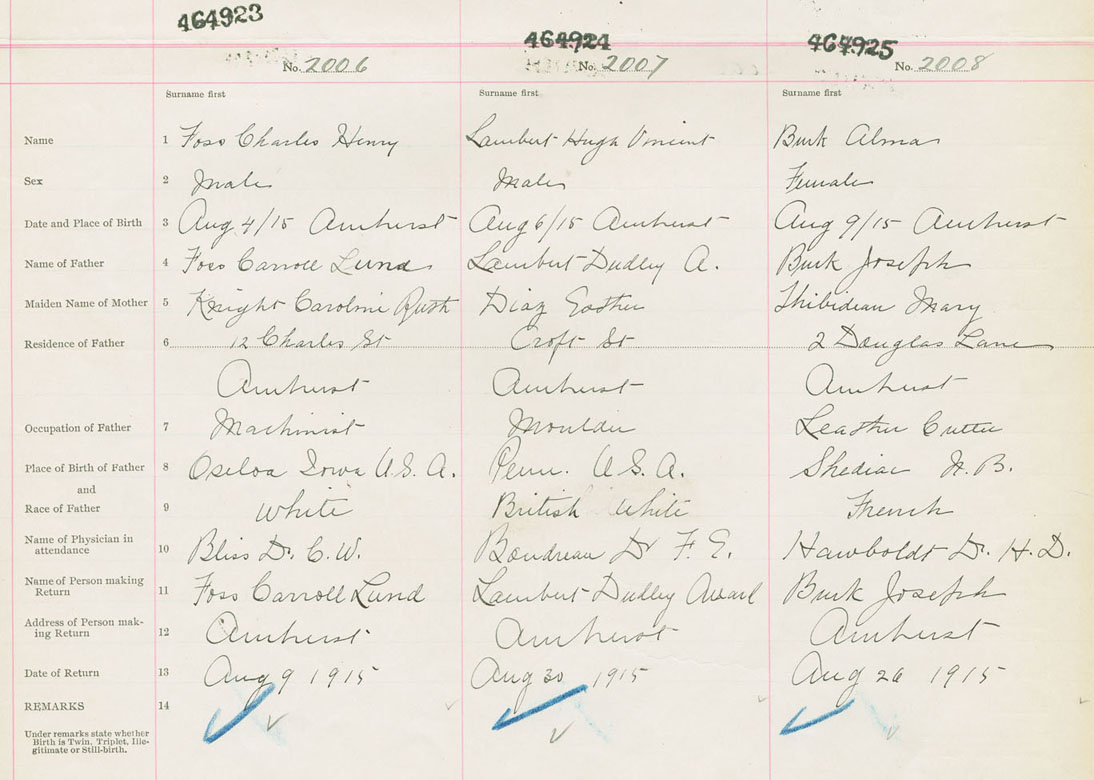 464923 464924 464925
No. 2006 No. 2007 No. 2008
Surname first Surname first Surname first
Name 1 Foss Charles Henry Lambert Hugh Vincent Burk Alma
Sex 2 Male Male Female
Date and Place of Birth 3 Aug 4/15 Amherst Aug 6/15 Amherst Aug 9/15 Amherst
Name of Father 4 Foss Carroll Lund Lambert Dudley A. Burk Joseph
Maiden Name of Mother 5 Knight Caroline Ruth Diaz Esther Thibideau Mary
Residence of Father 6 12 Charles St Croft St 2 Douglas Lane
Amherst Amherst Amherst
Occupation of Father 7 Machinist Moulder Leather Cutter
Place of Birth of Father 8 Iowa U.S.A. Penn. U.S.A. Shediac N.B.
and
Race of Father 9 White British White French
Name of Physician in
attendance 10 Bliss Dr. C.W. Boudreau Dr F. E. Hawboldt Dr. H.D.
Name of Person making
Return 11 Foss Carroll Lund Lambert Dudley Award Burk Joseph
Address of Person mak-
ing Return 12 Amherst Amherst Amherst
Date of Return 13 Aug 9 1915 Aug 30 1915 Aug 26 1915
REMARKS 14
Under remarks state whether
Birth is Twin, Triplet, Ille-
gitimate or Still-birth.